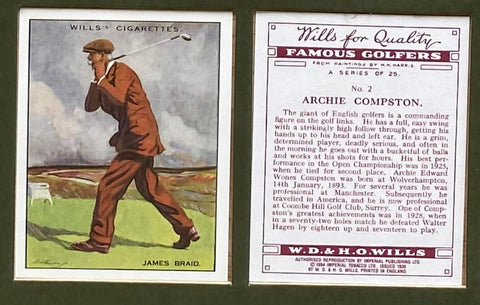 WILLS'S CIGARETTES.
JAMES BRAID.
Wills for Quality
FAMOUS GOLFERS
FROM PAINTINGS BY H. M. HARRIS
A SERIES OF 25.
No. 2
ARCHIE COMPSTON.
The giant of English golfers is a commanding
figure on the golf links. He has a full, easy swing
with a strikingly high follow through, getting his
hands up to his head and beyond. He is a grim,
determined player, deadly serious, and often in
the morning he goes out with a bucketful of balls
and works at his shots for hours. His best per-
formance in the Open Championship was in 1925,
when he tied for second place. Archie Edward
Wones Compston was born at Wolverhampton,
14th January, 1893. For several years he was
professional at Manchester. Subsequently he
travelled in America, and he is now professional
at Coombe Hill Golf Club, Surrey. One of Comp-
ston's greatest achievements was in 1928, when
in a seventy-two holes match he defeated Walter
Hagen by eighteen up and seventeen to play.
W.D.& H.O.WILLS
AUTHORISED REPRODUCTION BY IMPERIAL PUBLISHING LTD.
© 1994 IMPERIAL TOBACCO LTD. ISSUED 1930
BY W. D. & H. O. WILLS, PRINTED IN ENGLAND